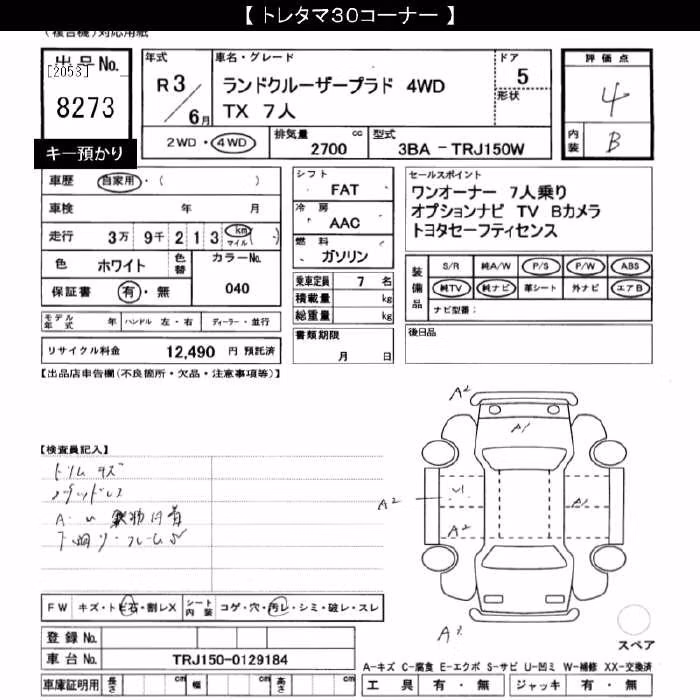 【 トレタマ３０コーナー 】
(複合機)対応用紙
出品No.
[2053]
8273
キー預かり
年式
R 3 / 6 月
車名・グレード
ランドクルーザープラド 4WD
TX 7人
ドア
5
形状
評価点
4
内装
B
2WD・4WD
排気量 2700 cc
型式 3BA－TRJ150W
車歴 自家用・( )
車検 年 月
走行 3万 9千 2 1 3 km マイル ( )
色 ホワイト
色替
カラーNo.
040
保証書 有・無
シフト
FAT
冷房
AAC
燃料
ガソリン
乗車定員 7 名
積載量 kg
総重量 kg
書類期限
月 日
セールスポイント
ワンオーナー 7人乗り
オプションナビ TV Bカメラ
トヨタセーフティセンス
装備品
S/R 純A/W P/S P/W ABS
純TV 純ナビ 革シート 外ナビ エアB
ナビ型番：
後日品
モデル年式 年 ハンドル 左・右 ディーラー・並行
リサイクル料金 12,490 円 預託済
【出品店申告欄(不良箇所・欠品・注意事項等)】
【検査員記入】
トリム キズ
A2
A1
A2
A1
A2
A2
FW キズ・トビ石・割レX
シート内装 コゲ・穴・汚レ・シミ・破レ・スレ
登録No.
車台No. TRJ150-0129184
車庫証明用 長さ cm 幅 cm 高さ cm
スペア
A-キズ C-腐食 E-エクボ S-サビ U-凹ミ W-補修 XX-交換済
工具 有・無 ジャッキ 有・無